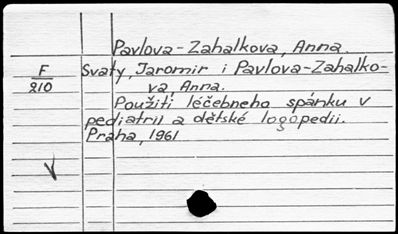 Pavlova-Zahalkova, Anna.
F
210
Svaty, Jaromir i Pavlova-Zahalko-
va, Anna.
Použiti léčebneho spánku v
pediatrii a dětské logopedii.
Praha, 1961